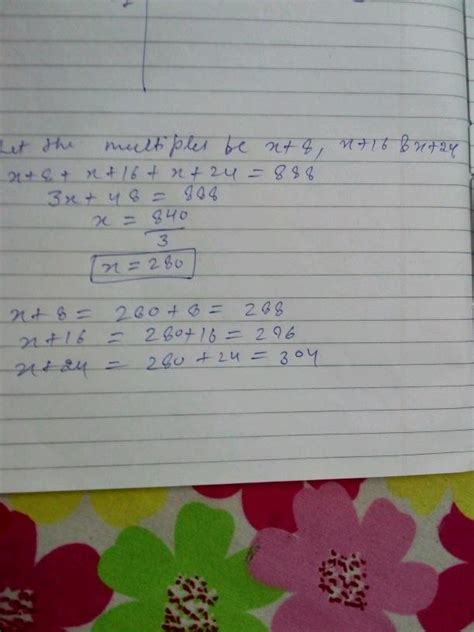 Let the multiples be x+8, x+16 & x+24
x+8 + x+16 + x+24 = 888
3x+48 = 888
x = 840
3
x = 280
x+8 = 280+8 = 288
x+16 = 280+16 = 296
x+24 = 280+24 = 304